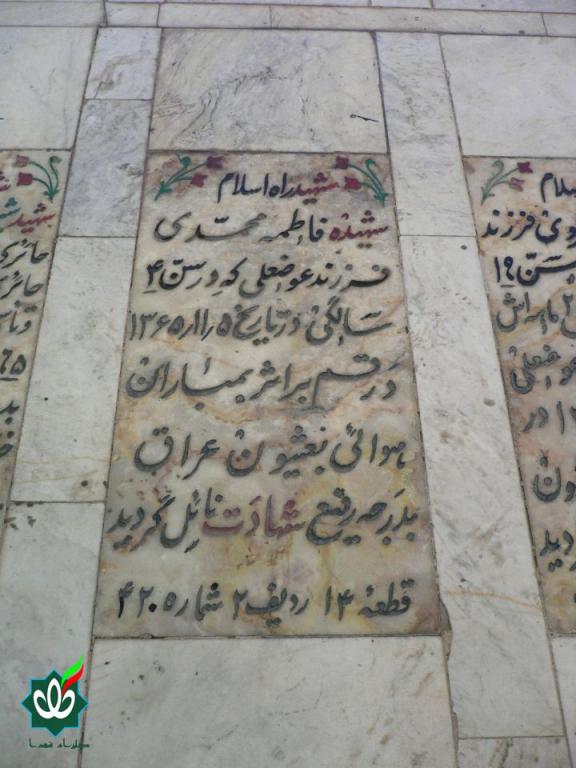 شهید راه اسلام
شهیده فاطمه محمدی
فرزند عوضعلی که در سن ۴
سالگی در تاریخ ۱۳۶۵/۱۱/۵
در قم بر اثر بمباران
هوائی بعثیون عراق
بدرجه رفیع شهادت نائل گردید
قطعهٔ ۱۴ ردیف ۲ شماره ۴۲۰
اسلام
فرزند
سن ۱۹
عوضعلی
در